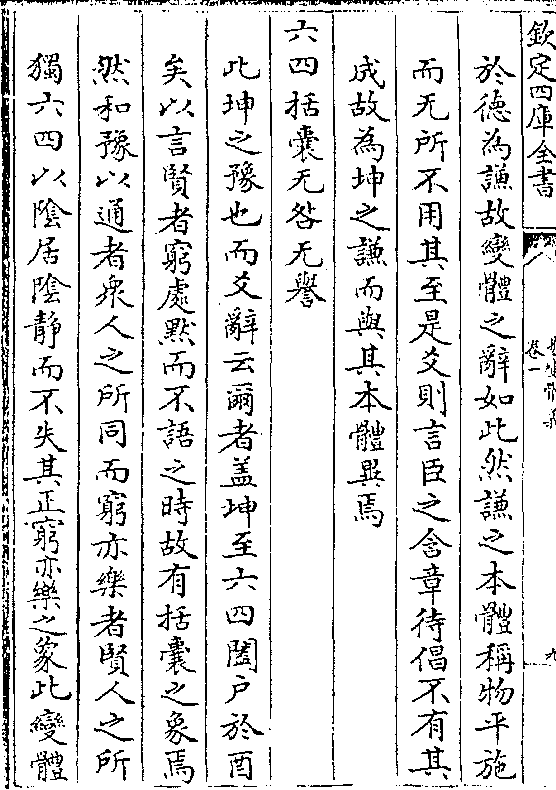 欽定四庫全書
卷一
九
於德為謙故變體之辭如此然謙之本體稱物平施
而无所不用其至是爻則言臣之含章待倡不有其
成故為坤之謙而與其本體異焉
六四括囊无咎无譽
此坤之豫也而爻辭云爾者盖坤至六四闔戶於酉
矣以言賢者窮處黙而不語之時故有括囊之象焉
然和豫以通者衆人之所同而窮亦樂者賢人之所
獨六四以陰居陰靜而不失其正窮亦樂之象此變體